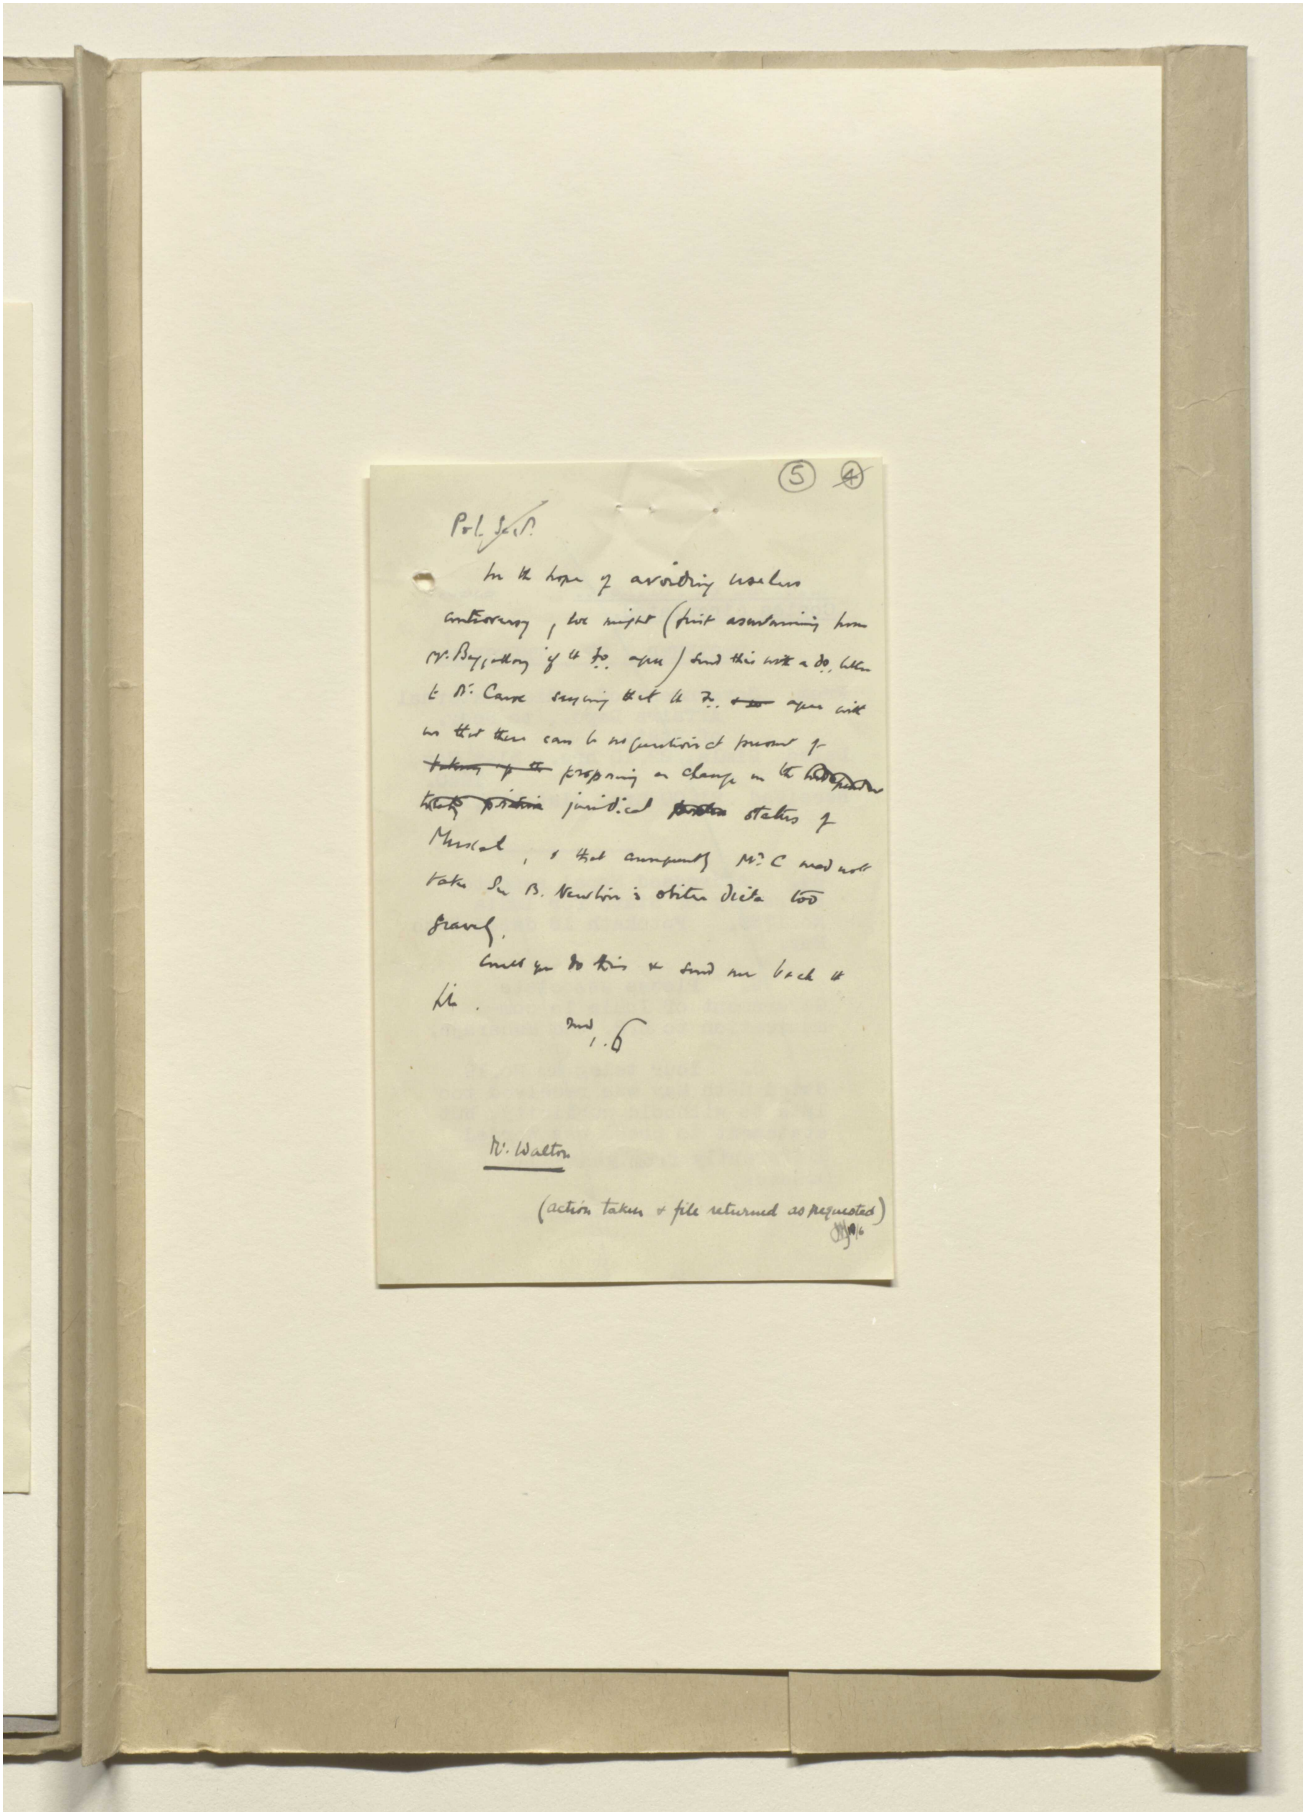 5 4
Pol. Sect.
In the hope of avoiding useless
controversy, we might (first ascertaining from
Mr. Baggallay if the F.O. agree) send this with a d.o. letter
to Mr. Caroe saying that the F.O. agree with
us that there can be no question at present of
taking up the proposing a change in the independent
treaty position juridical position status of
Muscat, & that consequently Mr. C need not
take Sir B. Newton's obiter dicta too
gravely.
Could you do this & send me back the
file.
6
Mr. Walton
(action taken & file returned as requested)